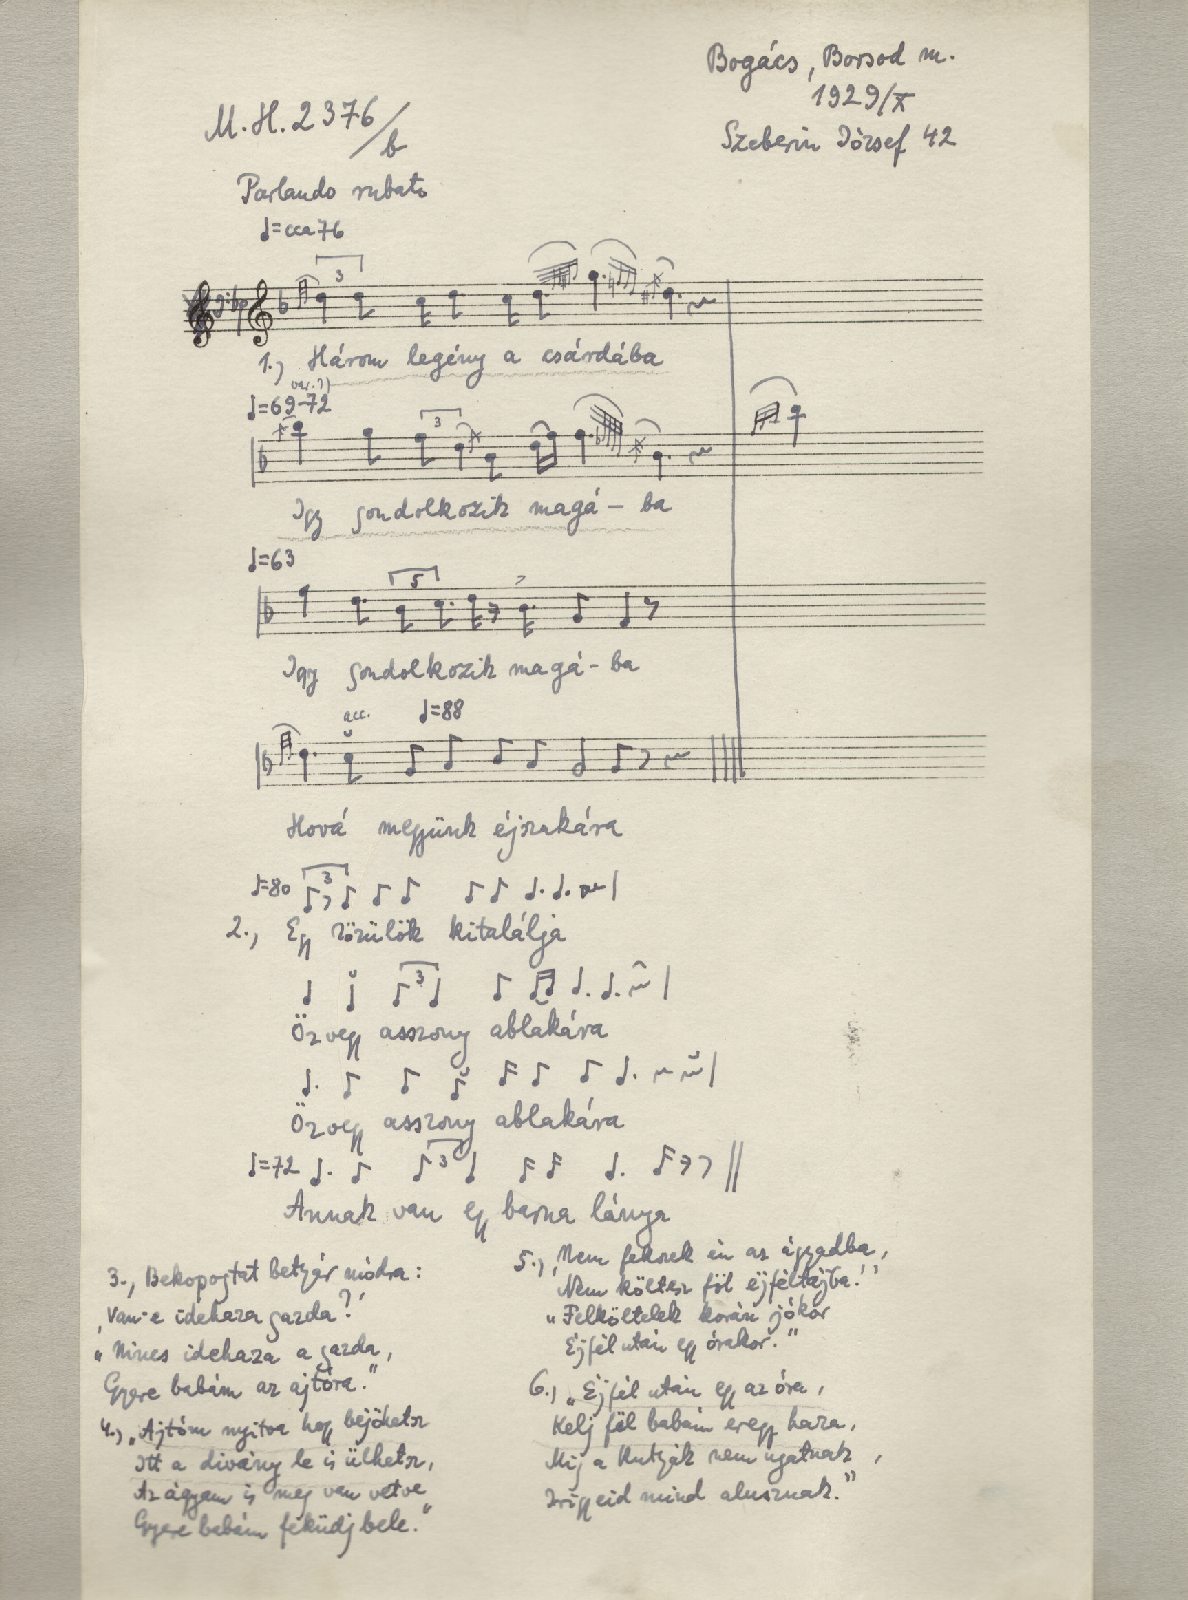 Bogács, Borsod m.
1929/X
Szeberin József 42
M.H. 2376/b
Parlando rubato
♩=cca 76
3
1., Három legény a csárdába
var. 7)
♩=69-72
3
Igy gondolkozik magá – ba
♩=63
5
Igy gondolkozik magá – ba
acc. ♩=88
Hová megyünk éjszakára
♩=80 3
2., Egy közülök kitalálja
3
Özvegy asszony ablakára
Özvegy asszony ablakára
♩=72 3
Annak van egy barna lánya
3., Bekopogtat betyár módra:
‚Van-e idehaza gazda?’
„Nincs idehaza a gazda,
Gyere babám az ajtóra.”
4., „Ajtóm nyitva hogy bejöhetsz
Itt a divány le is ülhetsz,
Az ágyam is meg van vetve
Gyere babám feküdj bele.”
5., ‚Nem fekszek én az ágyadba,
Nem költesz föl éjféltájba.’
„Felköltelek korán jókor
Éjfél után egy órakor.”
6., „Éjfél után egy az óra,
Kelj föl babám eregy haza,
Mig a kutyák nem ugatnak,
Irigyeid mind alusznak.”